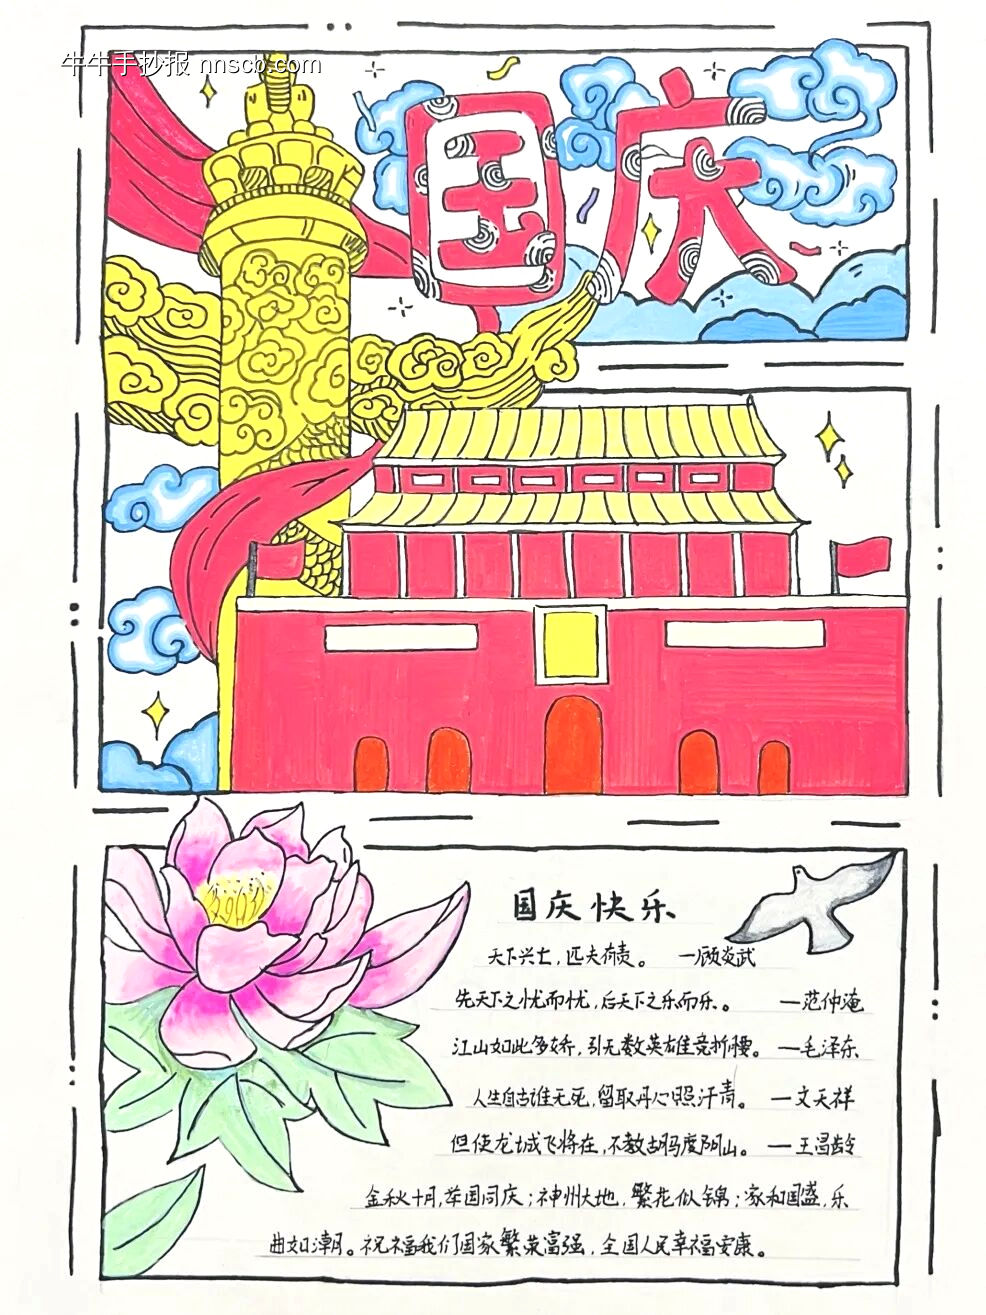 牛牛手抄报 nnscb.com
国庆
国庆快乐
天下兴亡，匹夫有责。 —顾炎武
先天下之忧而忧，后天下之乐而乐。 —范仲淹
江山如此多娇，引无数英雄竞折腰。 —毛泽东
人生自古谁无死，留取丹心照汗青。 —文天祥
但使龙城飞将在，不教胡马度阴山。 —王昌龄
金秋十月，举国同庆；神州大地，繁花似锦；家和国盛，乐
曲如潮。祝福我们国家繁荣富强，全国人民幸福安康。